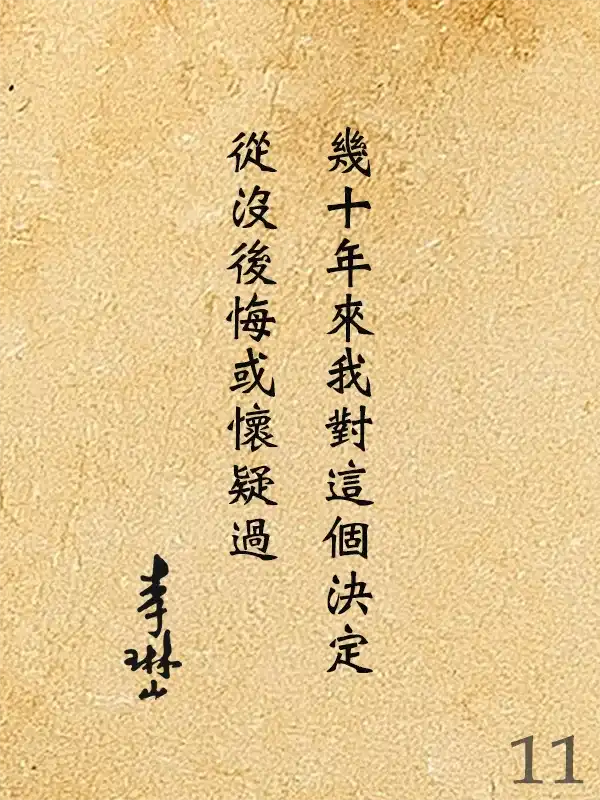 幾十年來我對這個決定
從沒後悔或懷疑過
李琳山
11